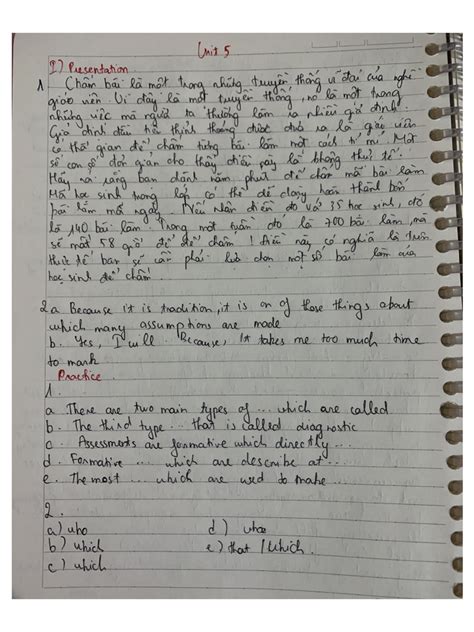 Unit 5
I) Presentation
1 Chấm bài là một trong những truyền thống vĩ đại của nghề
giáo viên. Vì đây là một truyền thống, nó là một trong
những việc mà người ta thường làm ra nhiều giả định.
Giả định đầu tiên thỉnh thoảng được đưa ra là giáo viên
có thời gian để chấm từng bài làm một cách tỉ mỉ. Một
số con số đơn giản cho thấy điều này là không thực tế.
Hãy nói rằng bạn dành năm phút để chấm mỗi bài làm
Mỗi học sinh trong lớp có thể dễ dàng hoàn thành bốn
bài làm mỗi ngày. Nếu nhân điều đó với 35 học sinh, đó
là 140 bài làm. Trong một tuần đó là 700 bài làm, mà
sẽ mất 58 giờ để chấm! Điều này có nghĩa là trên
thực tế bạn sẽ cần phải lựa chọn một số bài làm của
học sinh để chấm.
2 a Because it is tradition, it is on of those things about
which many assumptions are made
b. Yes, I will. Because, It takes me too much time
to mark.
Practice.
1.
a There are two main types of ... which are called
b. The third type ... that is called diagnostic
c. Assessments are formative which directly ...
d. Formative ... which are describe at ...
e. The most ... which are used to make ...
2.
a) who d) whose
b) which e) that / which.
c) which